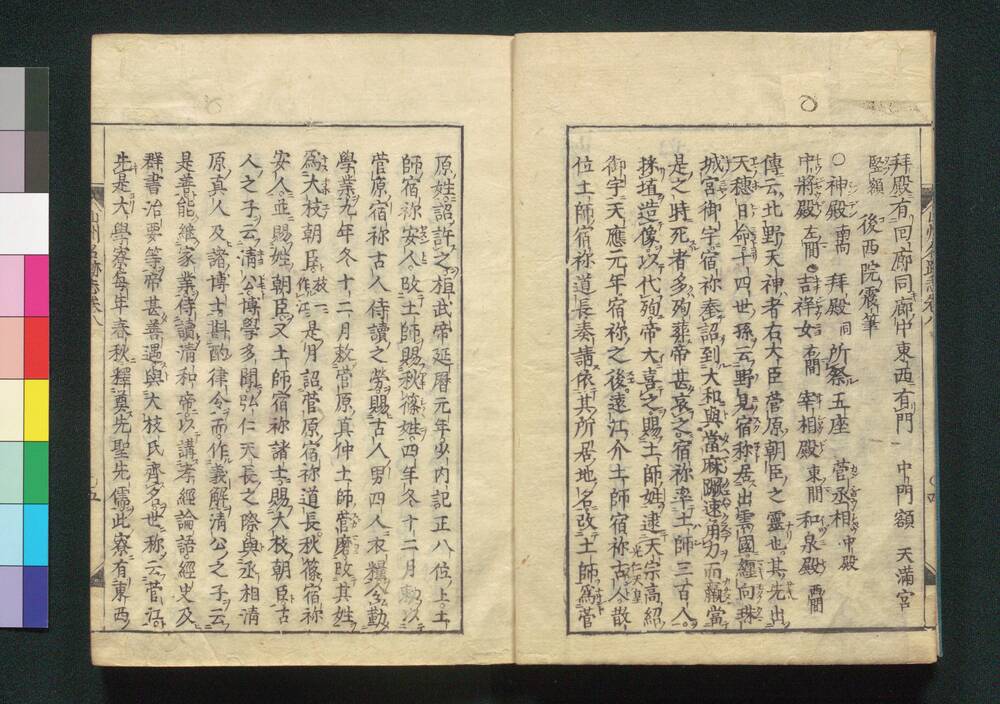 拜殿有回廊同廊中東西有門 中門額 天滿宮
竪額 後西院震筆
○神殿南向 拜殿同 所祭五座 菅丞相中殿
中將殿左間 吉祥女右間 宰相殿東間 和泉殿西間
傳云北野天神者右大臣菅原朝臣之靈也其先出
天穗日命十四世孫云野見宿称居出雲國纏向珠
城宮御宇宿祢奉詔到大和與當麻蹶速角力而贏當
是之時死者多殉葬帝甚哀之宿祢率土師三百人
採埴造像以代殉帝大喜之賜土師姓逮天宗高紹
御宇天應元年宿祢之後遠江介土師宿祢古人散
位土師宿祢道長奏請依其所居地名改土師爲菅
原姓詔許之桓武帝延曆元年少內記正八位上土
師宿祢安人改土師賜秋篠姓四年冬十二月勅以
菅原宿祢古人侍讀之勞賜古人男四人衣糧令勤
學業九年冬十二月敕菅原真仲土師菅麿改其姓
爲大枝朝臣 是月詔菅原宿祢道長秋篠宿祢
安人並賜姓朝臣又土師宿祢諸士賜大枝朝臣古
人之子云清公博學多聞弘仁天長之際與丞相清
原真人及諸博士斟酌律令而作義解清公之子云
是善能繼家業侍讀清和帝以講孝經論語經史及
群書治要等帝甚善遇與大枝氏齊名世称云菅江
先是大學寮每年春秋釋奠先聖先儒此寮有東西